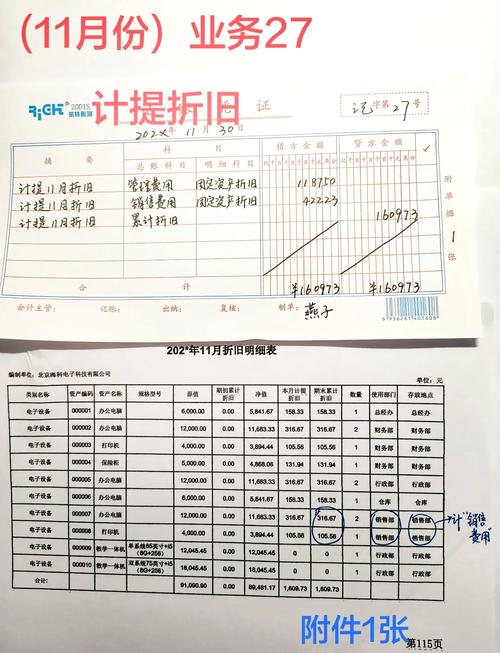 （11月份）业务27
RiCHT 2001S
计提折旧 凭证
记字第27号
202X年11月30日
摘要 科目 借方金额 贷方金额 ✓
总账科目 明细科目 亿千百十万千百十元角分 亿千百十万千百十元角分
计提11月折旧 管理费用 固定资产折旧 118750
计提11月折旧 销售费用 固定资产折旧 42223
计提11月折旧 累计折旧 160973
合计 ¥160973 ¥160973
附单据1张
会计主管: 记账: 出纳: 复核: 制单: 燕子
6936281401608
202*年11月折旧明细表
编制单位：北京海科电子科技有限公司 单位：元
类别名称 资产编码 资产名称 规格型号 原值 期初累计折旧 净值 本月计提折旧 期末累计折旧 数量 使用部门 存放地点
电子设备 000001 办公电脑 6,000.00 0.00 5,841.67 158.33 158.33 1 总经办 总经办
电子设备 000002 办公电脑 12,000.00 0.00 11,683.33 316.67 316.67 2 财务部 财务部
电子设备 000003 打印机 4,000.00 0.00 3,894.44 105.56 105.56 1 财务部 财务部
电子设备 000004 保险柜 5,000.00 0.00 4,868.06 131.94 131.94 1 财务部 财务部
电子设备 000005 办公电脑 12,000.00 0.00 11,683.33 316.67 316.67 2 行政部 行政部
电子设备 000006 办公电脑 6,000.00 0.00 5,841.67 158.33 158.33 1 仓库 仓库
电子设备 000007 办公电脑 12,000.00 0.00 11,683.33 316.67 316.67 2 销售部 销售部
电子设备 000008 打印机 4,000.00 0.00 3,894.44 105.56 105.56 1 销售部 销售部
电子设备 000009 教学一体机 单系统65英寸+i5（8G+256） 12,045.45 12,045.45 0 0 1 行政部 行政部
电子设备 000010 教学一体机 双系统75英寸+i5（8G+256） 18,045.45 18,045.45 0 0 1 行政部 行政部
合计： 91,090.90 0.00 89,481.17 1,609.73 1,609.73
计"销售费用
附件1张
第115页